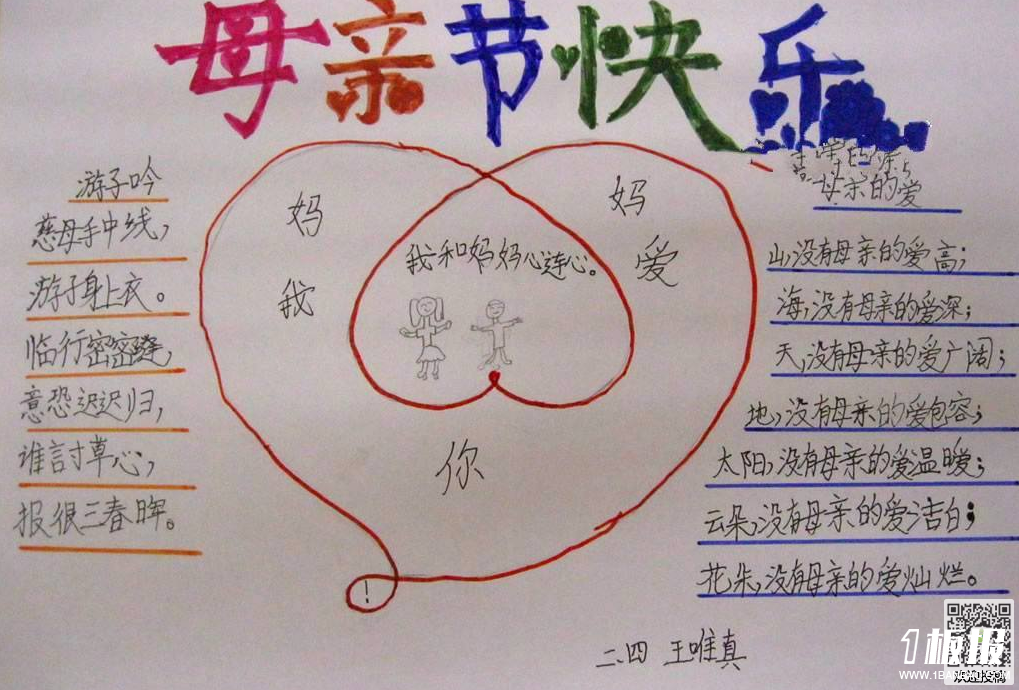 母亲节快乐
游子吟
慈母手中线，
游子身上衣。
临行密密缝，
意恐迟迟归，
谁討草心，
报很三春晖。
妈
妈
我
爱
我和妈妈心连心。
你
！
母亲的爱
山，没有母亲的爱高；
海，没有母亲的爱深；
天，没有母亲的爱广阔；
地，没有母亲的爱包容；
太阳，没有母亲的爱温暖；
云朵，没有母亲的爱洁白；
花朵，没有母亲的爱灿烂。
二.四 王唯真
1板报
WWW.1BANBAO.COM
欢迎投稿